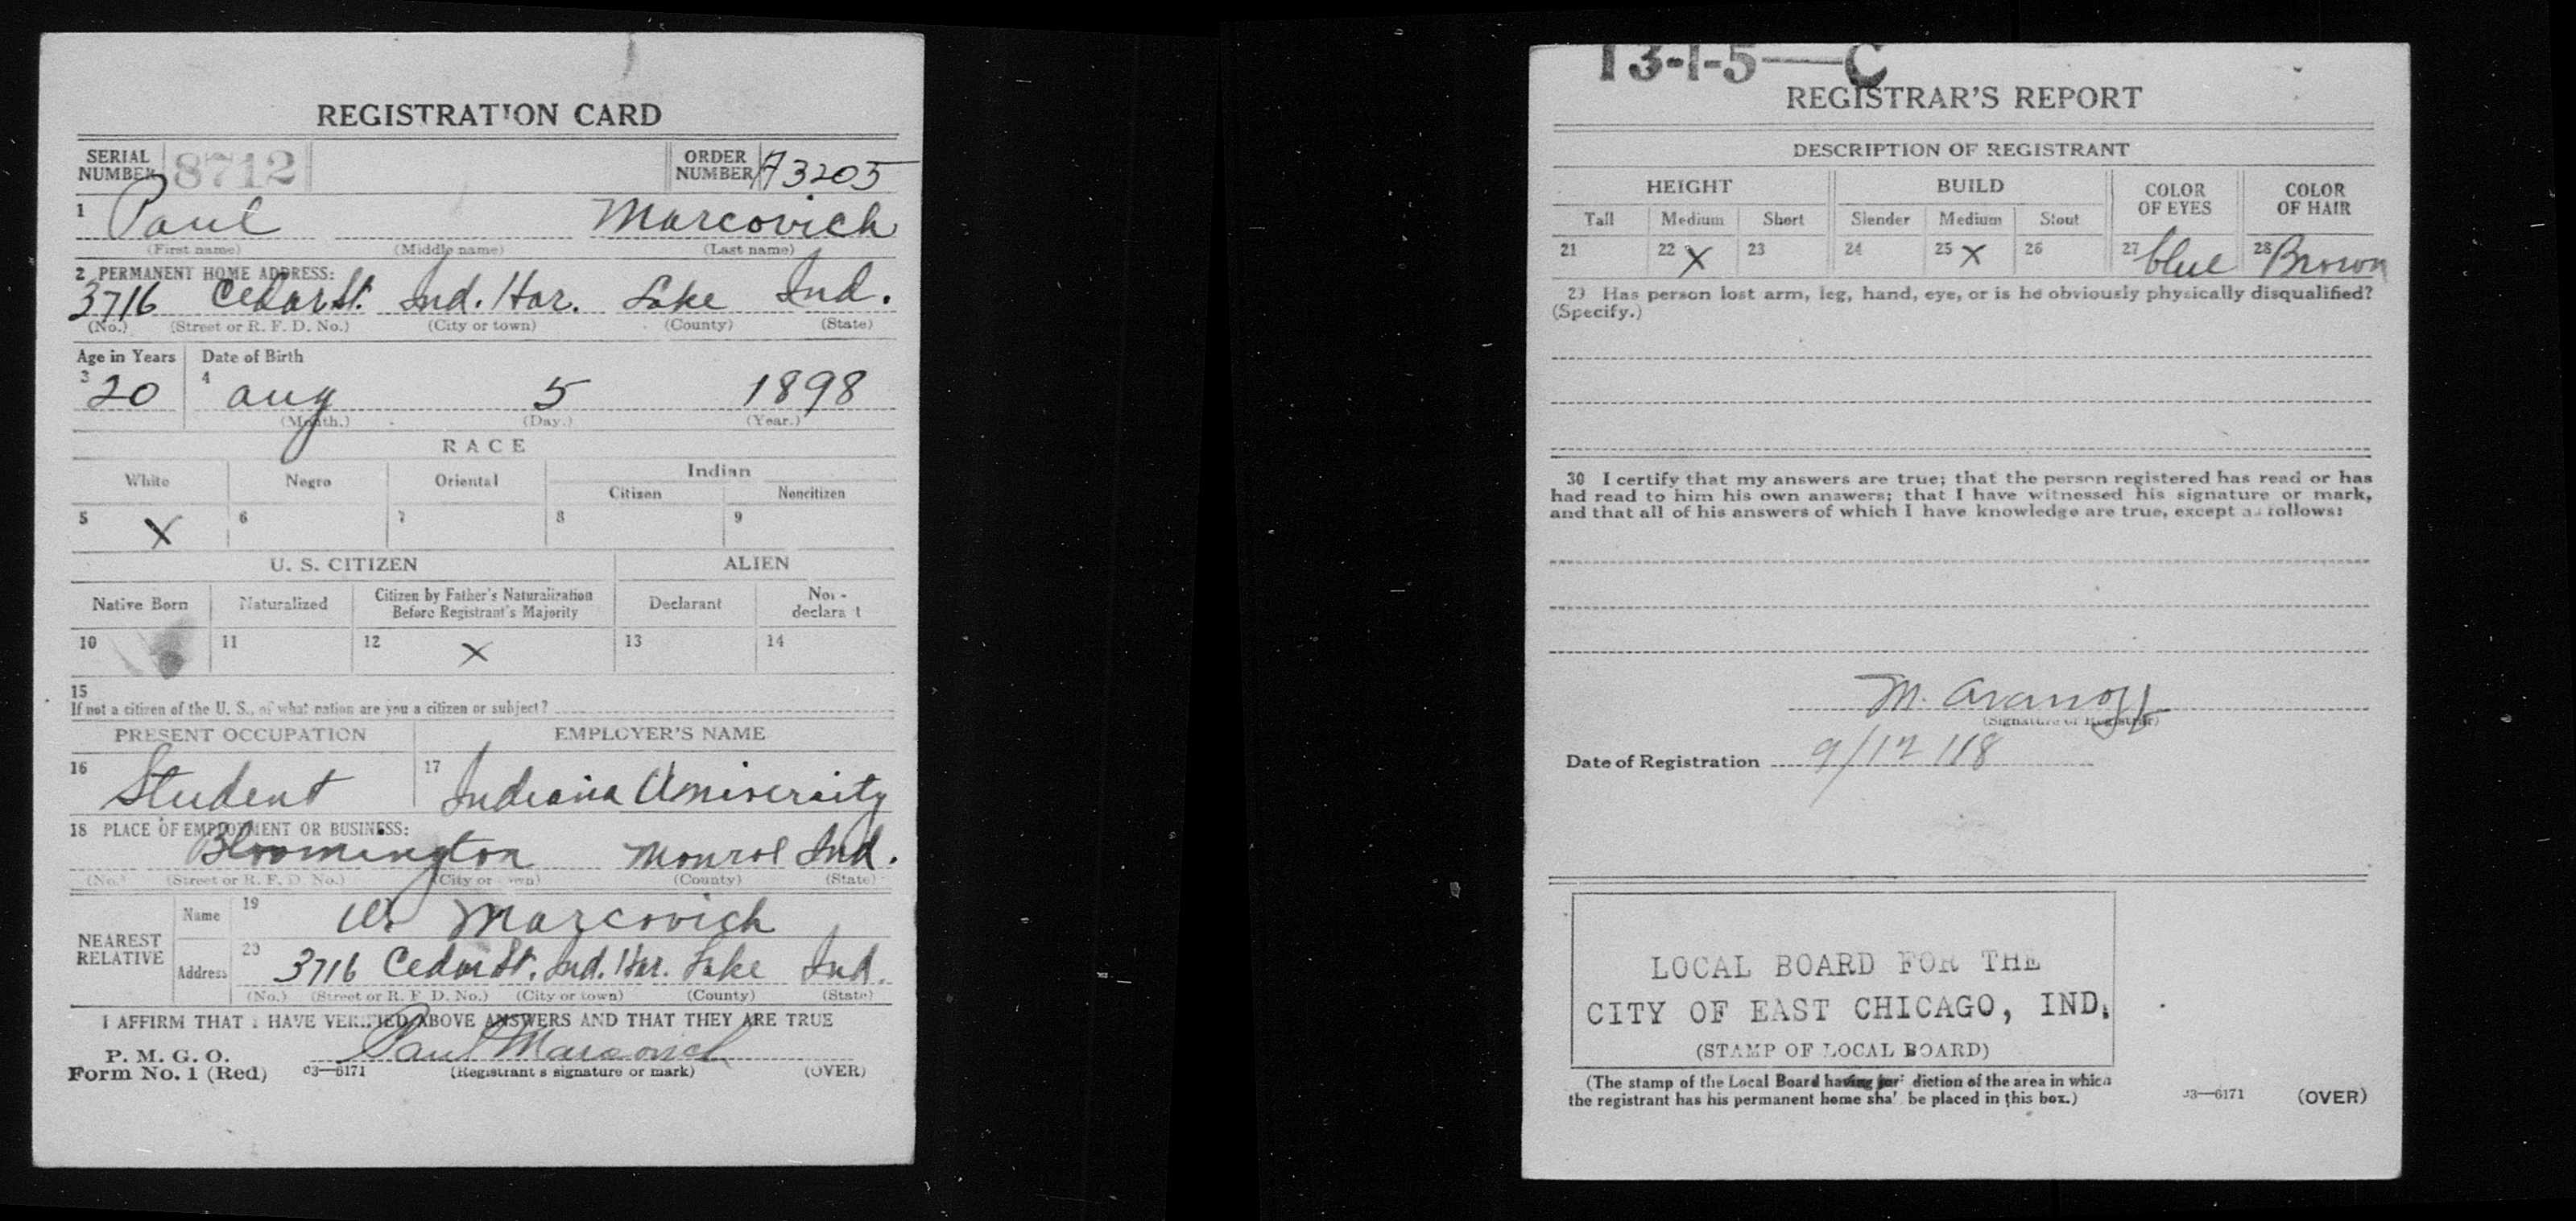 REGISTRATION CARD
SERIAL NUMBER 8712 ORDER NUMBER A3205
1 Paul Marcovich
(First name) (Middle name) (Last name)
2 PERMANENT HOME ADDRESS:
3716 Cedar St. Ind. Har. Lake Ind.
(No.) (Street or R. F. D. No.) (City or town) (County) (State)
Age in Years Date of Birth
3 20 4 Aug 5 1898
(Month.) (Day.) (Year.)
RACE
White Negro Oriental Indian
Citizen Noncitizen
5 X 6 7 8 9
U. S. CITIZEN ALIEN
Native Born Naturalized Citizen by Father's Naturalization Before Registrant's Majority Declarant Non-declarant
10 11 12 X 13 14
15
If not a citizen of the U. S., of what nation are you a citizen or subject?
PRESENT OCCUPATION EMPLOYER'S NAME
16 Student 17 Indiana University
18 PLACE OF EMPLOYMENT OR BUSINESS:
Bloomington Monroe Ind.
(No.) (Street or R. F. D. No.) (City or town) (County) (State)
NEAREST RELATIVE Name 19 Marcovich
Address 20 3716 Cedar St. Ind. Har. Lake Ind.
(No.) (Street or R. F. D. No.) (City or town) (County) (State)
I AFFIRM THAT I HAVE VERIFIED ABOVE ANSWERS AND THAT THEY ARE TRUE
P. M. G. O.
Form No. 1 (Red) 03—6171 Paul Marcovich
(Registrant's signature or mark) (OVER)
13-1-5—C
REGISTRAR'S REPORT
DESCRIPTION OF REGISTRANT
HEIGHT BUILD COLOR OF EYES COLOR OF HAIR
Tall Medium Short Slender Medium Stout
21 22 X 23 24 25 X 26 27 blue 28 Brown
29 Has person lost arm, leg, hand, eye, or is he obviously physically disqualified?
(Specify.)
30 I certify that my answers are true; that the person registered has read or has
had read to him his own answers; that I have witnessed his signature or mark,
and that all of his answers of which I have knowledge are true, except as follows:
M. Aranoff
(Signature of Registrar)
Date of Registration 9/12 118
LOCAL BOARD FOR THE
CITY OF EAST CHICAGO, IND.
(STAMP OF LOCAL BOARD)
(The stamp of the Local Board having jurisdiction of the area in which
the registrant has his permanent home shall be placed in this box.)
03—6171 (OVER)